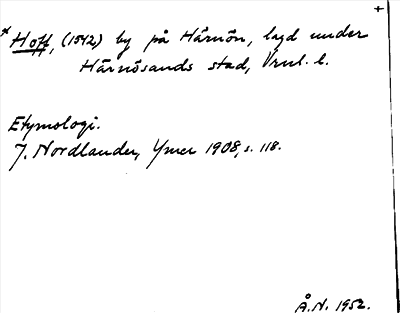 +
* Hoff, (1542) by på Härnön, lagd under
Härnösands stad, Vrnl. l.
Etymologi.
J. Nordlander, Ymer 1908, s. 118.
Å.N. 1952.